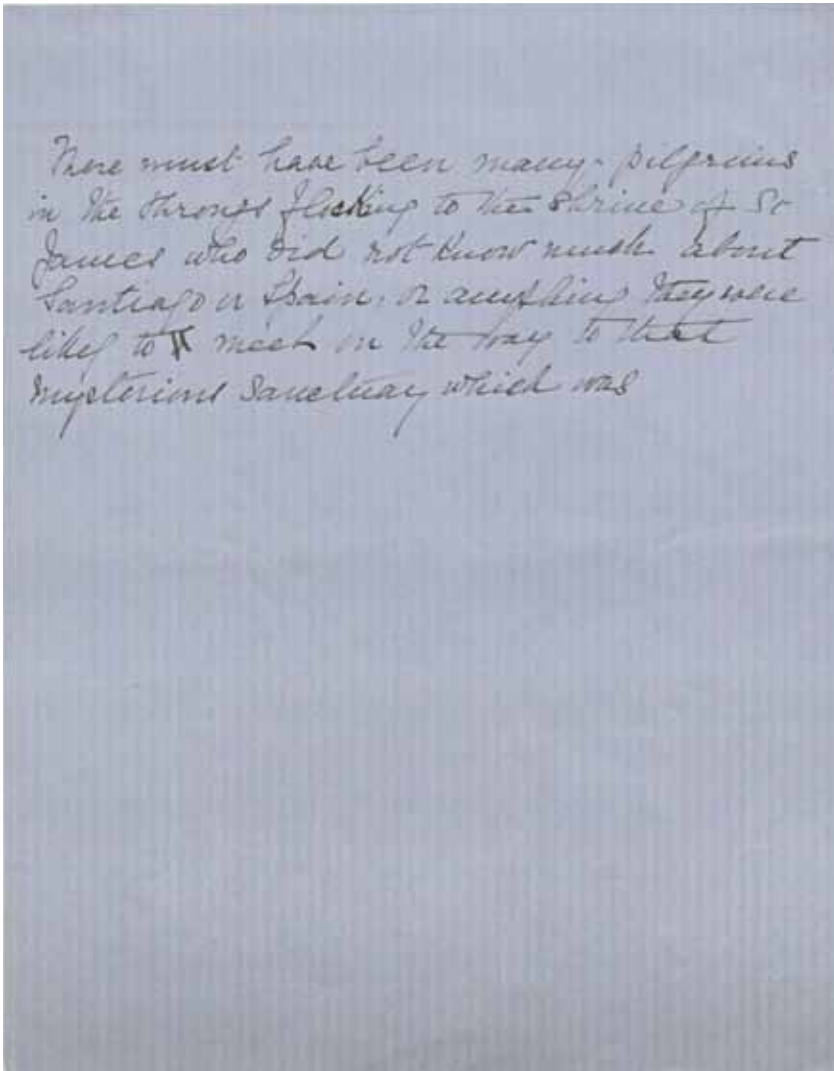 There must have been many pilgrims
in the throngs flocking to the Shrine of St
James who did not know much about
Santiago or Spain, or anything they were
likely to meet on the way to that
mysterious Sanctuary which was